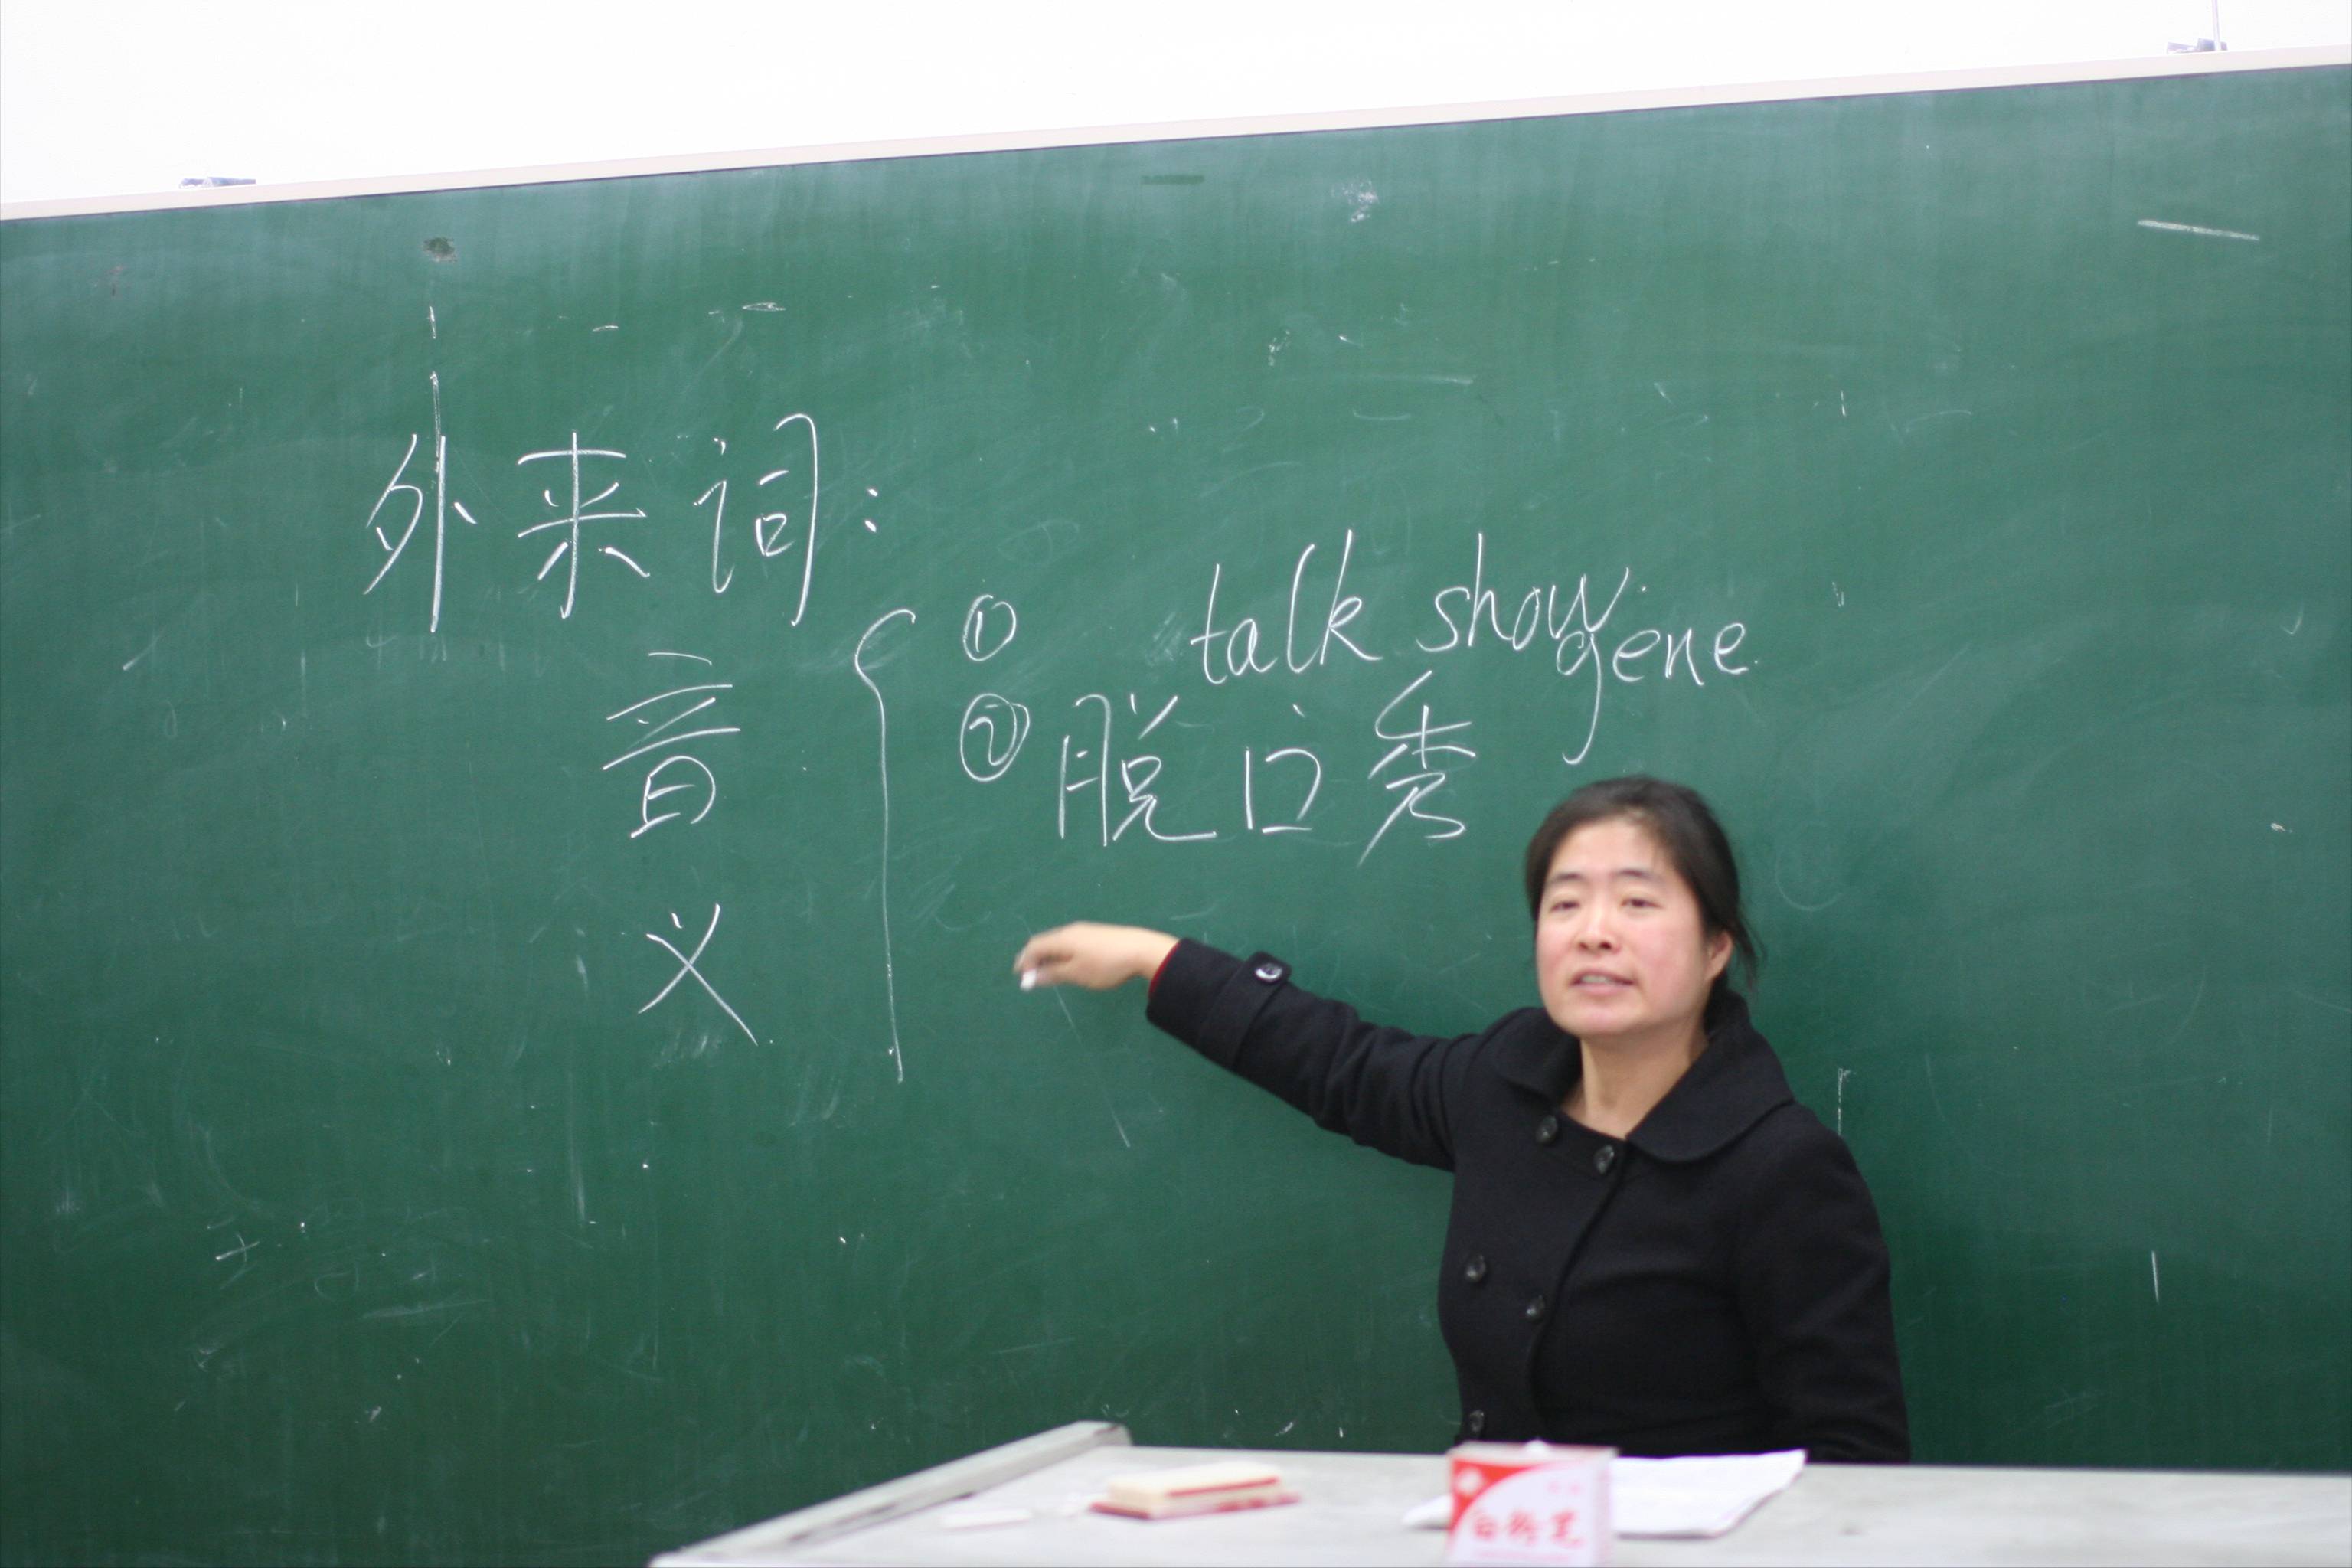 外来词:
① talk show
gene
音
② 脱口秀
义
白粉笔